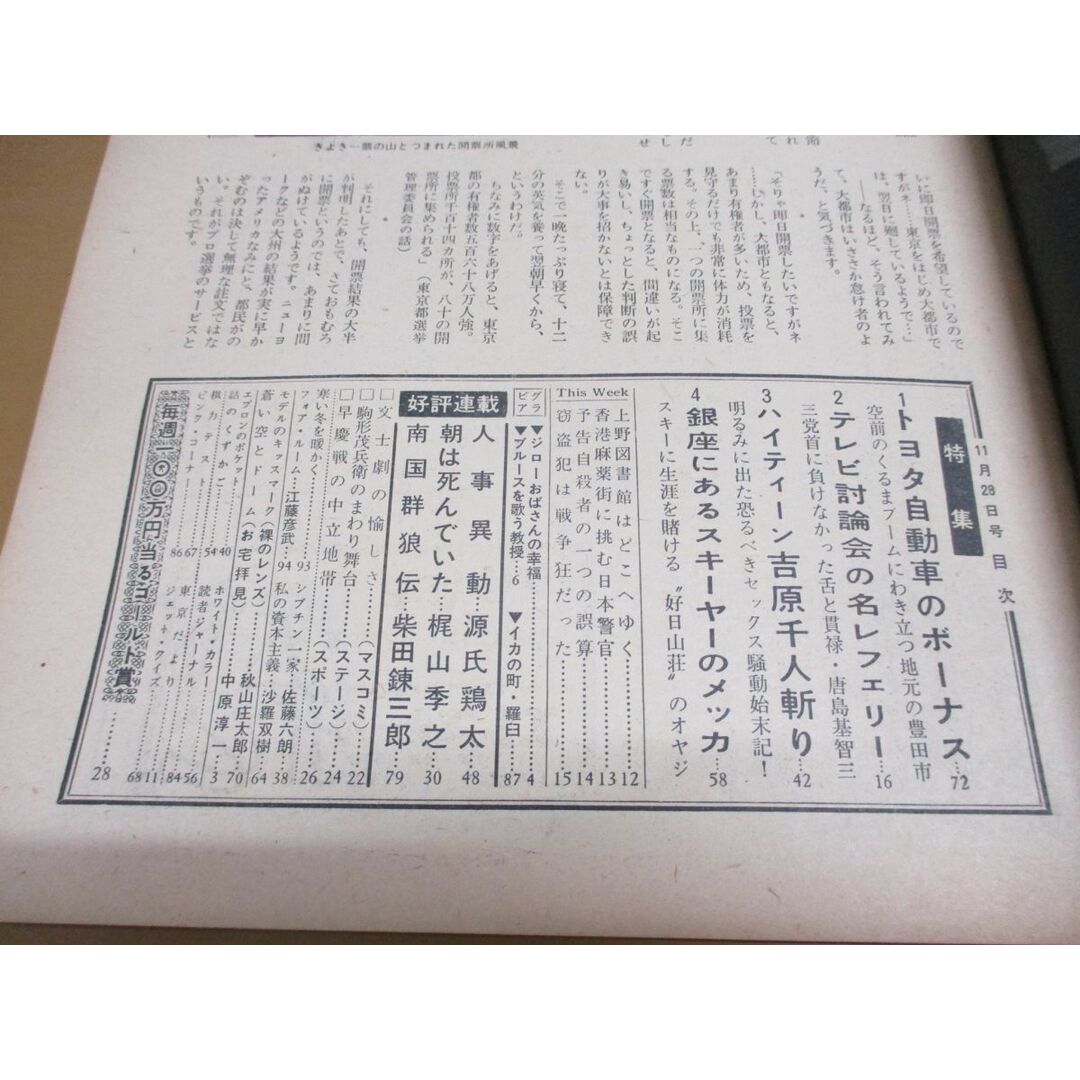 きよき一票の山とつまれた開票所風景
いに即日開票を希望しているので
すがネ……東京をはじめ大都市で
は、翌日に廻しているようで…」
――なるほど、そう言われてみ
て。大都市はいささか怠け者のよ
うだ、と気づきます。
「そりゃ即日開票したいですがネ
……しかし、大都市ともなると、
あまり有権者が多いため、投票を
見守るだけでも非常に体力が消耗
する。その上、一つの開票所に集
る票数は相当なものになる。そこ
ですぐ開票となると、間違いが起
き易いし、ちょっとした判断の誤
りが大事を招かないとは保障でき
ない。
そこで一晩たっぷり寝て、十二
分の英気を養って翌朝早くから、
というわけだ。
ちなみに数字をあげると、東京
都の有権者数五百六十八万人強。
投票所千百十四ヵ所が、八十の開
票所に集められる」（東京都選挙
管理委員会の話）
それにしても、開票結果の大半
が判明したあとで、さておもむろ
に開票というのでは、あまりに間
がぬけているようです。ニューヨ
ークなどの大州の結果が実に早か
ったアメリカなみにと、都民がの
ぞむのは決して無理な註文ではな
い。それがプロ選挙のサービスと
いうものです。
11月28日号 目次
特集
1 トヨタ自動車のボーナス…72
空前のくるまブームにわき立つ地元の豊田市
2 テレビ討論会の名レフェリー…16
三党首に負けなかった舌と貫禄・唐島基智三
3 ハイティーン吉原千人斬り…42
明るみに出た恐るべきセックス騒動始末記！
4 銀座にあるスキーヤーのメッカ…58
スキーに生涯を賭ける〝好日山荘〟のオヤジ
This Week
上野図書館はどこへゆく…12
香港麻薬街に挑む日本警官…13
予告自殺者の一つの誤算…14
窃盗犯は戦争狂だった…15
グラビア
▼ジローおばさんの幸福…4
▼ブルースを歌う教授…6
▼イカの町・羅臼…87
好評連載
人事異動…源氏鶏太…48
朝は死んでいた…梶山季之…30
南国群狼伝…柴田錬三郎…79
□文士劇の愉しさ…（マスコミ）…22
□駒形茂兵衛のまわり舞台…（ステージ）…24
□早慶戦の中立地帯…（スポーツ）…26
寒い冬を暖かく…93
フォア・ルーム…江藤彦武…94
モデルのキッスマーク（裸のレンズ）
蒼い空とドーム（お宅拝見）
エプロンのポケット…40
話のくずかご…54
棋力テスト…67
ピンク・コーナー…86
シブチン一家…佐藤六朗…38
私の資本主義…沙羅双樹…64
秋山庄太郎…70
中原淳一…3
ホワイト・カラー…56
読者ジャーナル…84
東京だより…11
ジェット・クイズ…68
毎週一〇〇万円当るゴールド賞…28